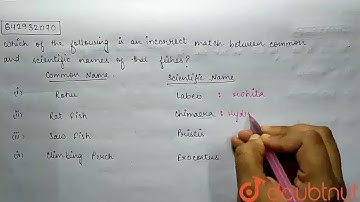 642932070
Which of the following is an incorrect match between common
and scientific names of the fishes?
Common Name Scientific Name
(i) Rohu Labeo : Rohita
(ii) Rat fish Chimaera : Hydr
(iii) Saw fish Pristis
(iv) Climbing Perch Exocoetus
doubtnut